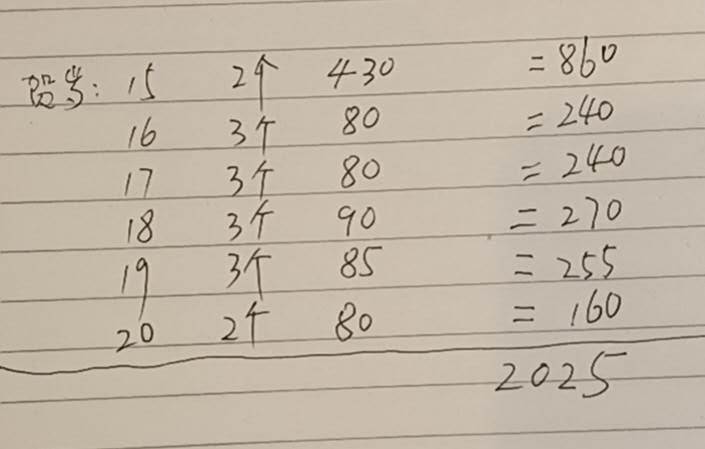 15 2个 430 =860
16 3个 80 =240
17 3个 80 =240
18 3个 90 =270
19 3个 85 =255
20 2个 80 =160
2025